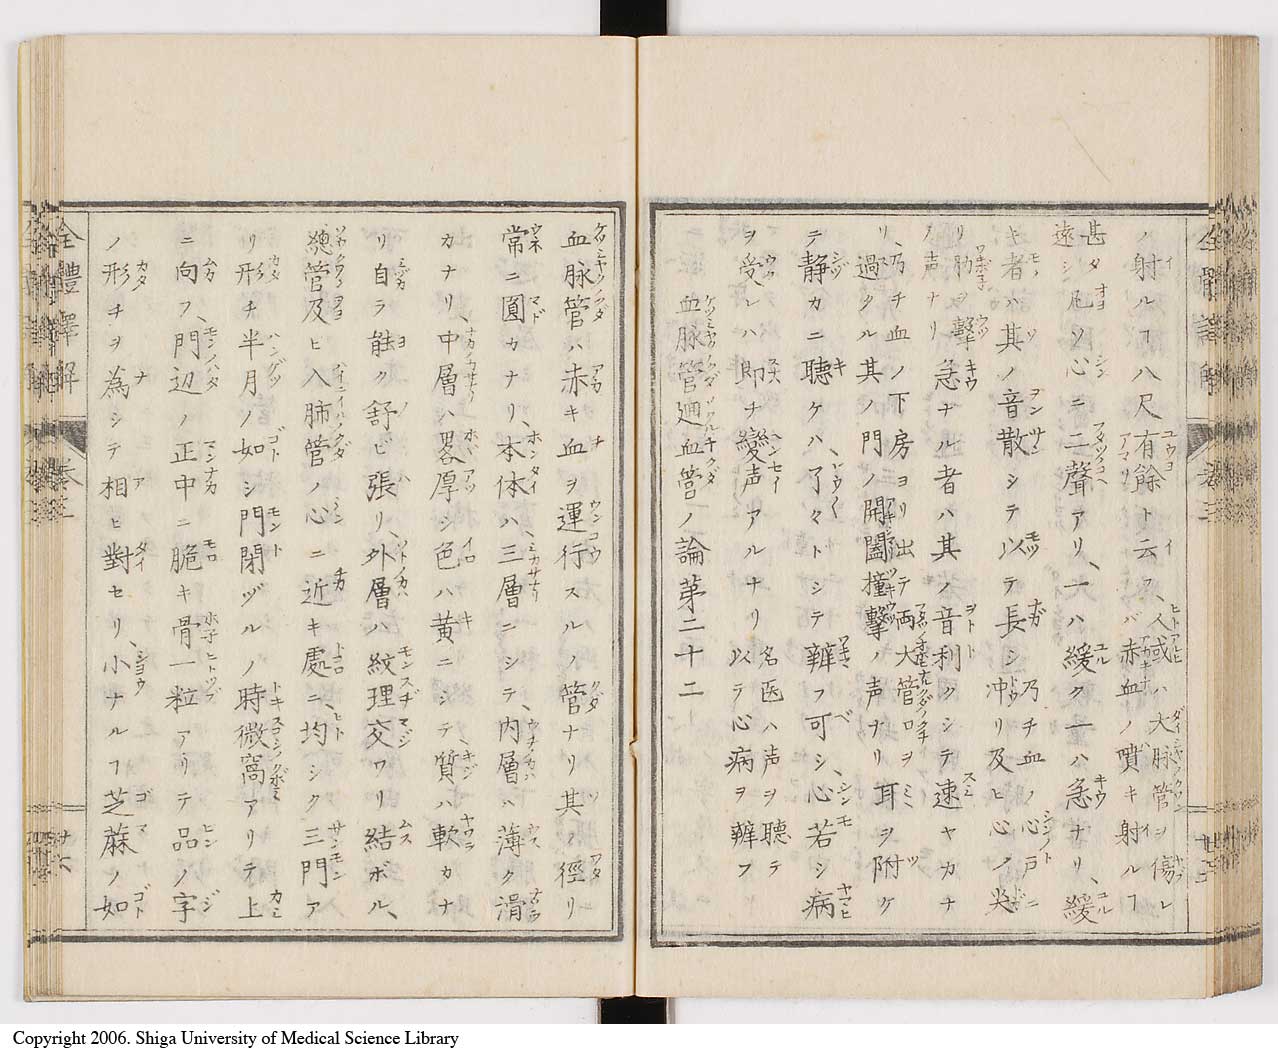 ノ射ルヿ八尺有餘ト云ス、人或ハ大脉管ヲ傷レ
バ赤血ノ噴キ射ルヿ
甚タ
遠シ
凡ソ心ニ二聲アリ、一ハ緩ク一ハ急ナリ、緩
キ者ハ其ノ音散シテ以テ長シ
乃チ血ノ心戸ニ
冲リ及ヒ心ノ尖
リ肋ヲ撃
ノ声ナリ
急ナル者ハ其ノ音利クシテ速ヤカナ
リ、乃チ血ノ下房ヨリ出テ両大管口ヲ
過クル其ノ門ノ開闔撞撃ノ声ヲリ
耳ヲ附ケ
テ静カニ聴ケハ、了々トシテ辨フ可シ、心若シ病
ヲ受レハ即チ變声アルナリ
名医ハ声ヲ聴テ
以テ心病ヲ辨フ
血脉管廻血管ノ論第二十二
血脉管ハ赤キ血ヲ運行スルノ管ナリ其ノ徑リ
常ニ圓カナリ、本体ハ、三層ニシテ、内層ハ薄ク滑
カナリ、中層ハ畧厚シ色ハ黄ニシテ質ハ軟カナ
リ自ラ能ク舒ビ張リ、外層ハ紋理交ワリ結ボル、
總管及ヒ入肺管ノ心ニ近キ處ニ、均シク三門ア
リ形チ半月ノ如シ門閉ヅルノ時微窩アリテ上
ニ向フ、門辺ノ正中ニ脆キ骨一粒アリテ品ノ字
ノ形チヲ為シテ相ヒ對セリ、小ナルヿ芝蔴ノ如
全體譯解
Copyright 2006. Shiga University of Medical Science Library